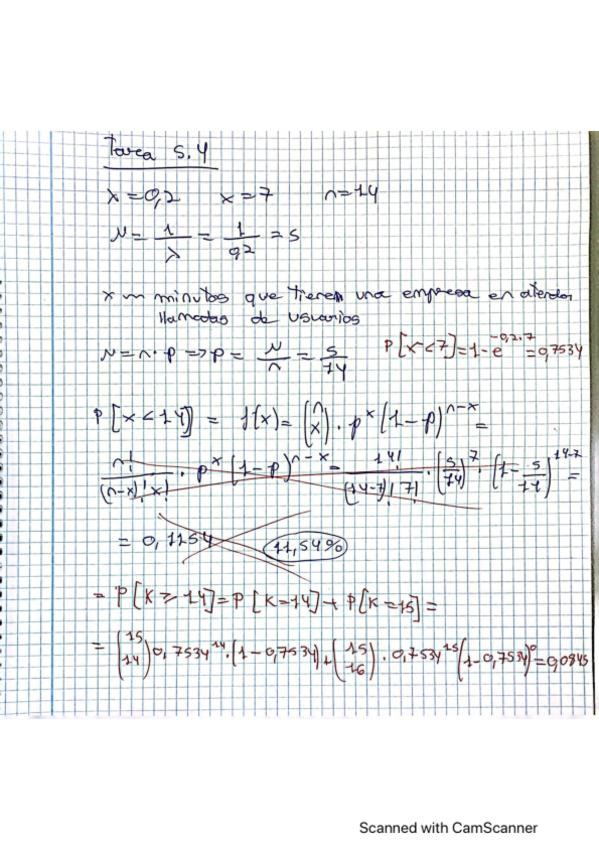 Tarea 5.4
λ=0,2 x=7 n=14
μ= 1/λ = 1/0,2 = 5
x ~ minutos que tienen una empresa en atender
llamadas de usuarios
μ=n·p => p= μ/n = 5/14 P[x<7]=1-e^-0,2·7=0,7534
P[x<14] = f(x)= (n x) · p^x (1-p)^n-x =
n!/(n-x)! x! · p^x (1-p)^n-x = 14!/(14-7)! 7! · (5/14)^7 · (1- 5/14)^14-7 =
= 0,1154 11,54%
= P[K≥14]=P[K=14]+P[K=15]=
= (15 14)0,7534^14·(1-0,7534)+(15 16)·0,7534^15(1-0,7534)^0=0,0845
Scanned with CamScanner